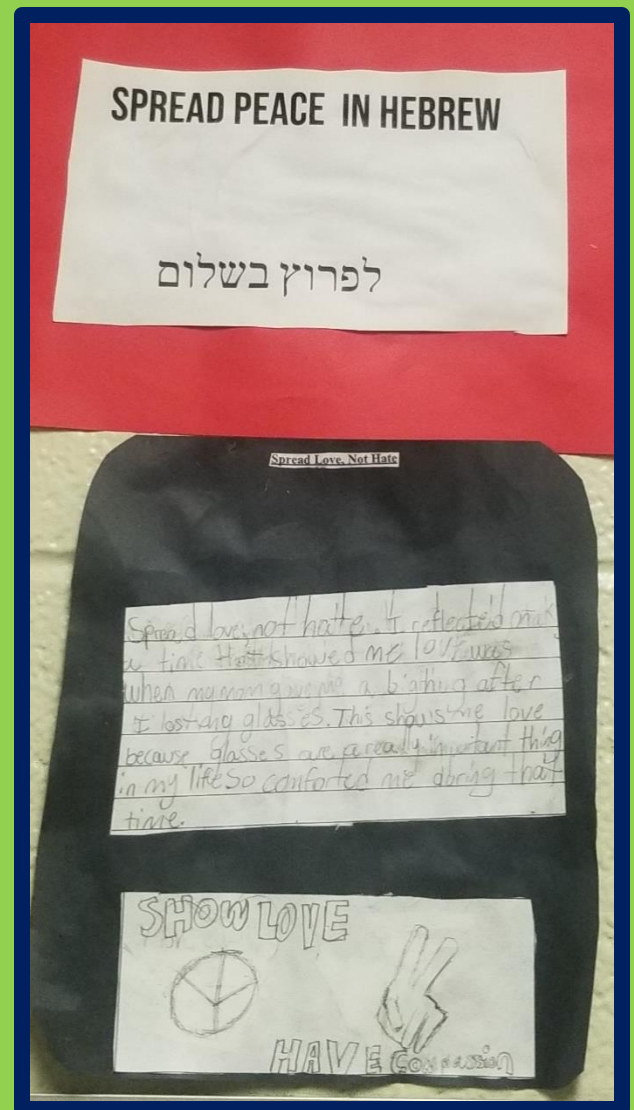 SPREAD PEACE IN HEBREW
לפרוץ בשלום
Spread Love, Not Hate
Spread love, not hate. I reflected on
a time that showed me love was
when my mom gave me a after
I lost my glasses. This shows me love
because glasses are a really important thing
in my life So comforted me during that
time.
SHOW LOVE
HAVE Compassion